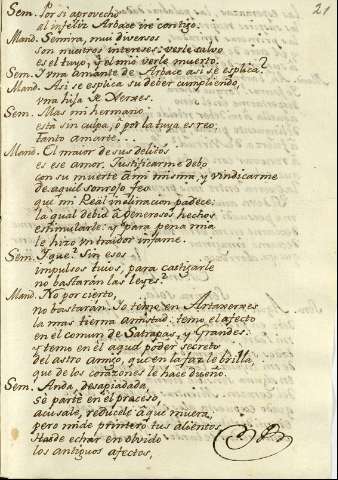 21
Sem. Por si aprovecho
al infeliz Arbace iré contigo.
Mand. Semira, mui diversos
son nuestros intereses: verle salvo
es el tuyo, y el mio verle muerto.
Sem. Y una amante de Arbace asi se esplica?
Mand. Asi se esplica su deber cumpliendo,
una hija de Xerxes.
Sem. Mas mi hermano
está sin culpa, ó por la tuya es reo,
tanto amarte...
Mand. El maior de sus delitos
es ese amor. Justificarme debo
con su muerte á mi misma, y vindicarme
de aquel sonrojo feo
que mi Real inclinacion padece;
la qual debió á generosos hechos
estimularle: y para pena mia
le hizo un traidor infame.
Sem. Y que? Sin esos
impulsos tuios, para castigarle
no bastarán las leyes?
Mand. No por cierto,
no bastarán. Yo temo en Artaxerxes
la mas tierna amistad: temo el afecto
en el comun de Satrapas, y Grandes:
y temo en él aquel poder secreto
del astro amigo, que en la faz le brilla,
que de los corazones le hace dueño.
Sem. Anda, desapiadada,
sé parte en el proceso,
acusale, reducele á que muera,
pero mide primero tus alientos.
Has de echar en olvido
los antiguos afectos,